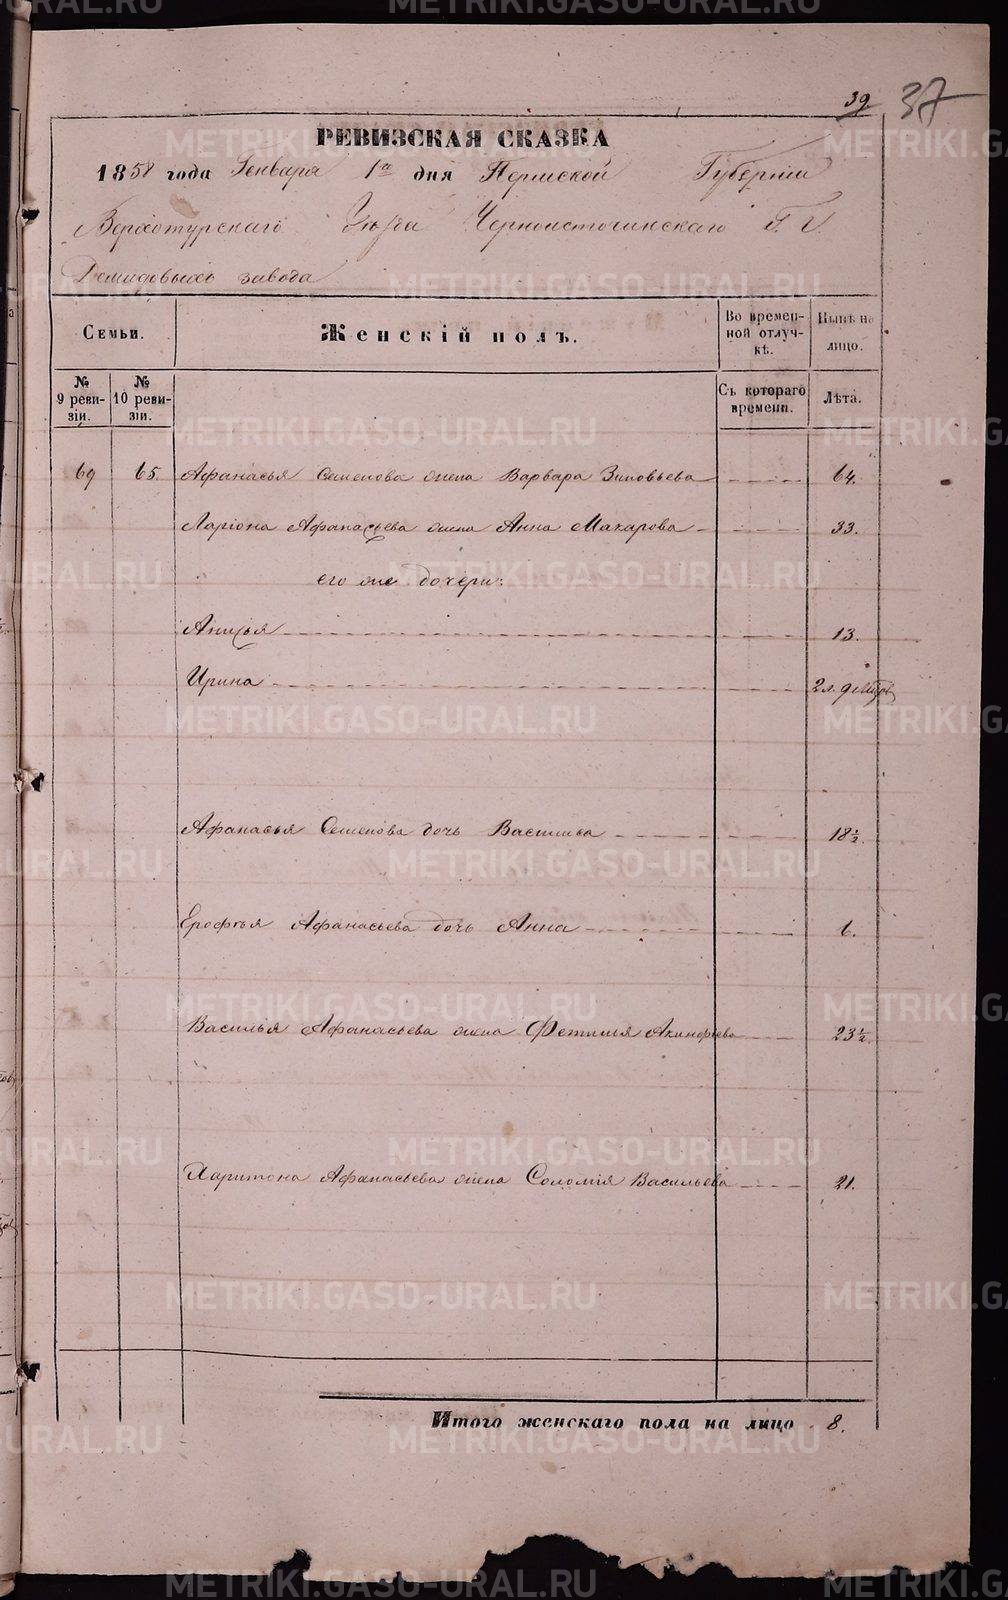 39. 37
РЕВИЗСКАЯ СКАЗКА
1858 года Генваря 1го дня Пермской Губернiи
Верхотурскаго Уѣзда Черноисточинскаго Г. Г.
Демидовыхъ завода
Семьи.
Женскiй полъ.
Во времен-
ной отлуч-
кѣ.
Нынѣ на
лицо.
№
9 реви-
зiи.
№
10 реви-
зiи.
Съ котораго
времени.
Лѣта.
69 65. Афанасья Семенова жена Варвара Зиновьева 64.
Ларiона Афанасьева жена Анна Макарова 33.
его же дочери:
Анисья 13.
Ирина
Афанасья Семенова дочь Василиса 18½
Ерофѣя Афанасьева дочь Анна 6.
Василья Афанасьева жена Фетинья Акинфiева 23½
Харитона Афанасьева жена Соломiя Васильева 21.
Итого женскаго пола на лицо 8.
METRIKI.GASO-URAL.RU